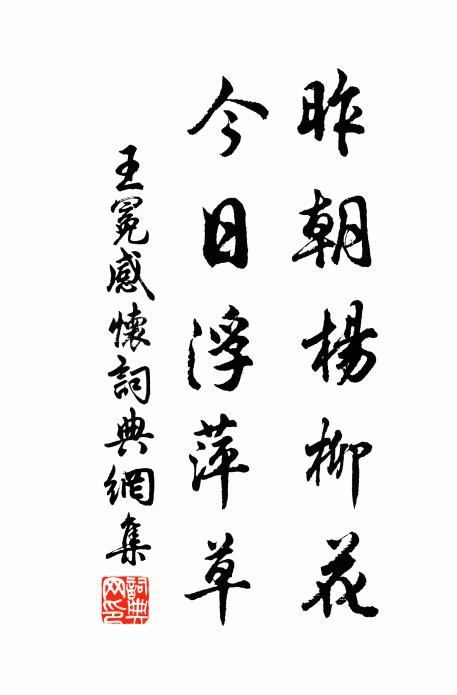 昨朝楊柳花
今日浮萍草
王冕感懷詞典網集
詞典
网印